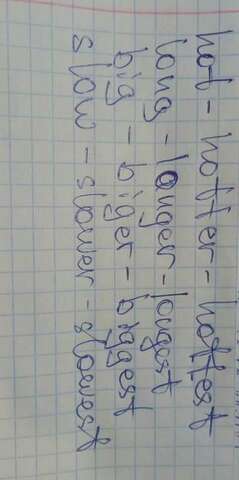 hot - hotter - hottest
long - longer - longest
big - biger - biggest
slow - slower - slowest